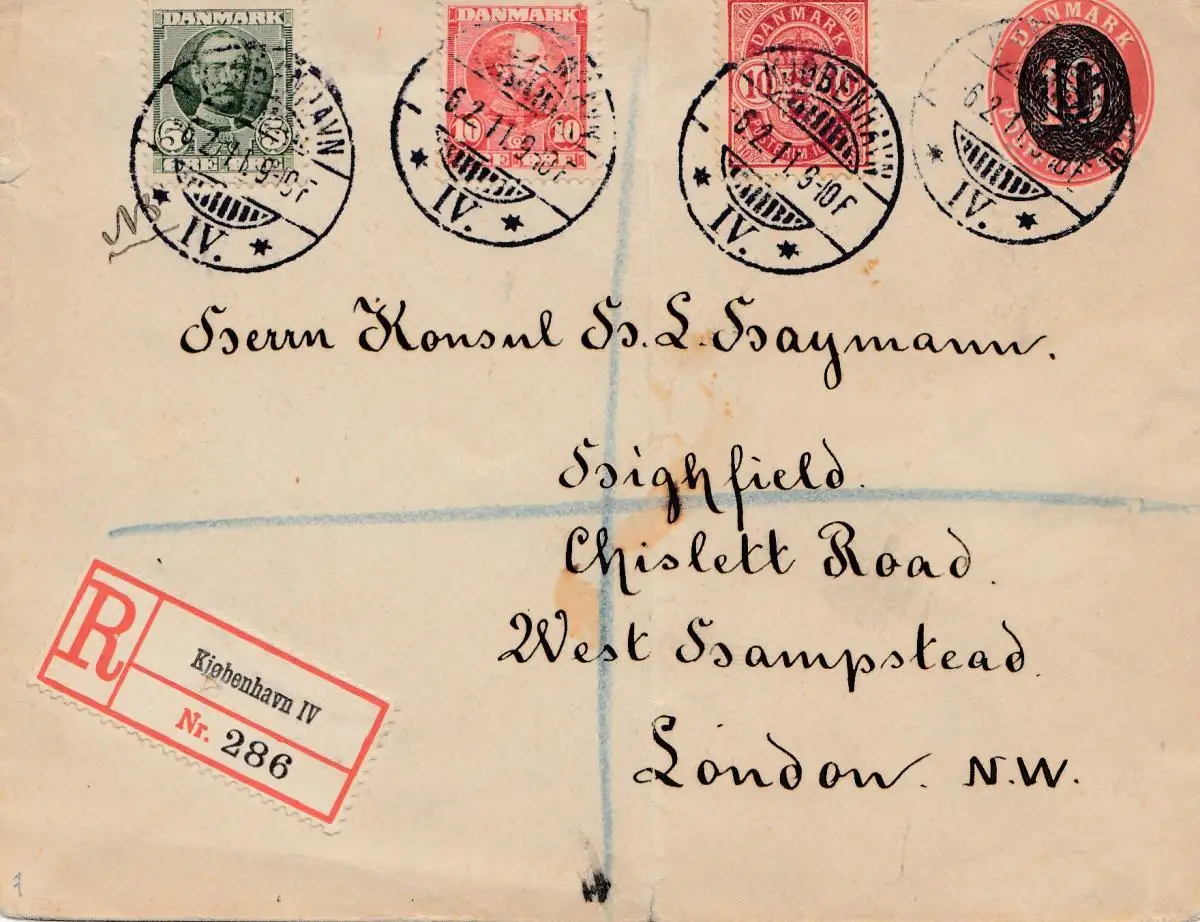 DANMARK
5 5
ØRE
KJØBENHAVN
6.2.11.9-10F
IV.
DANMARK
10 10
KJØBENHAVN
6.2.11.9-10F
IV.
DANMARK
10 10
10 10
KJØBENHAVN
6.2.11.9-10F
IV.
DANMARK
10
10
6.2.11.9-10F
IV.
NB
Herrn Konsul H. L. Haymann.
Highfield.
Chislett Road.
West Hampstead
London. N.W.
R
Kjøbenhavn IV
Nr. 286